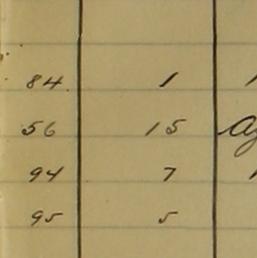 84 1
56 15
94 7
95 5